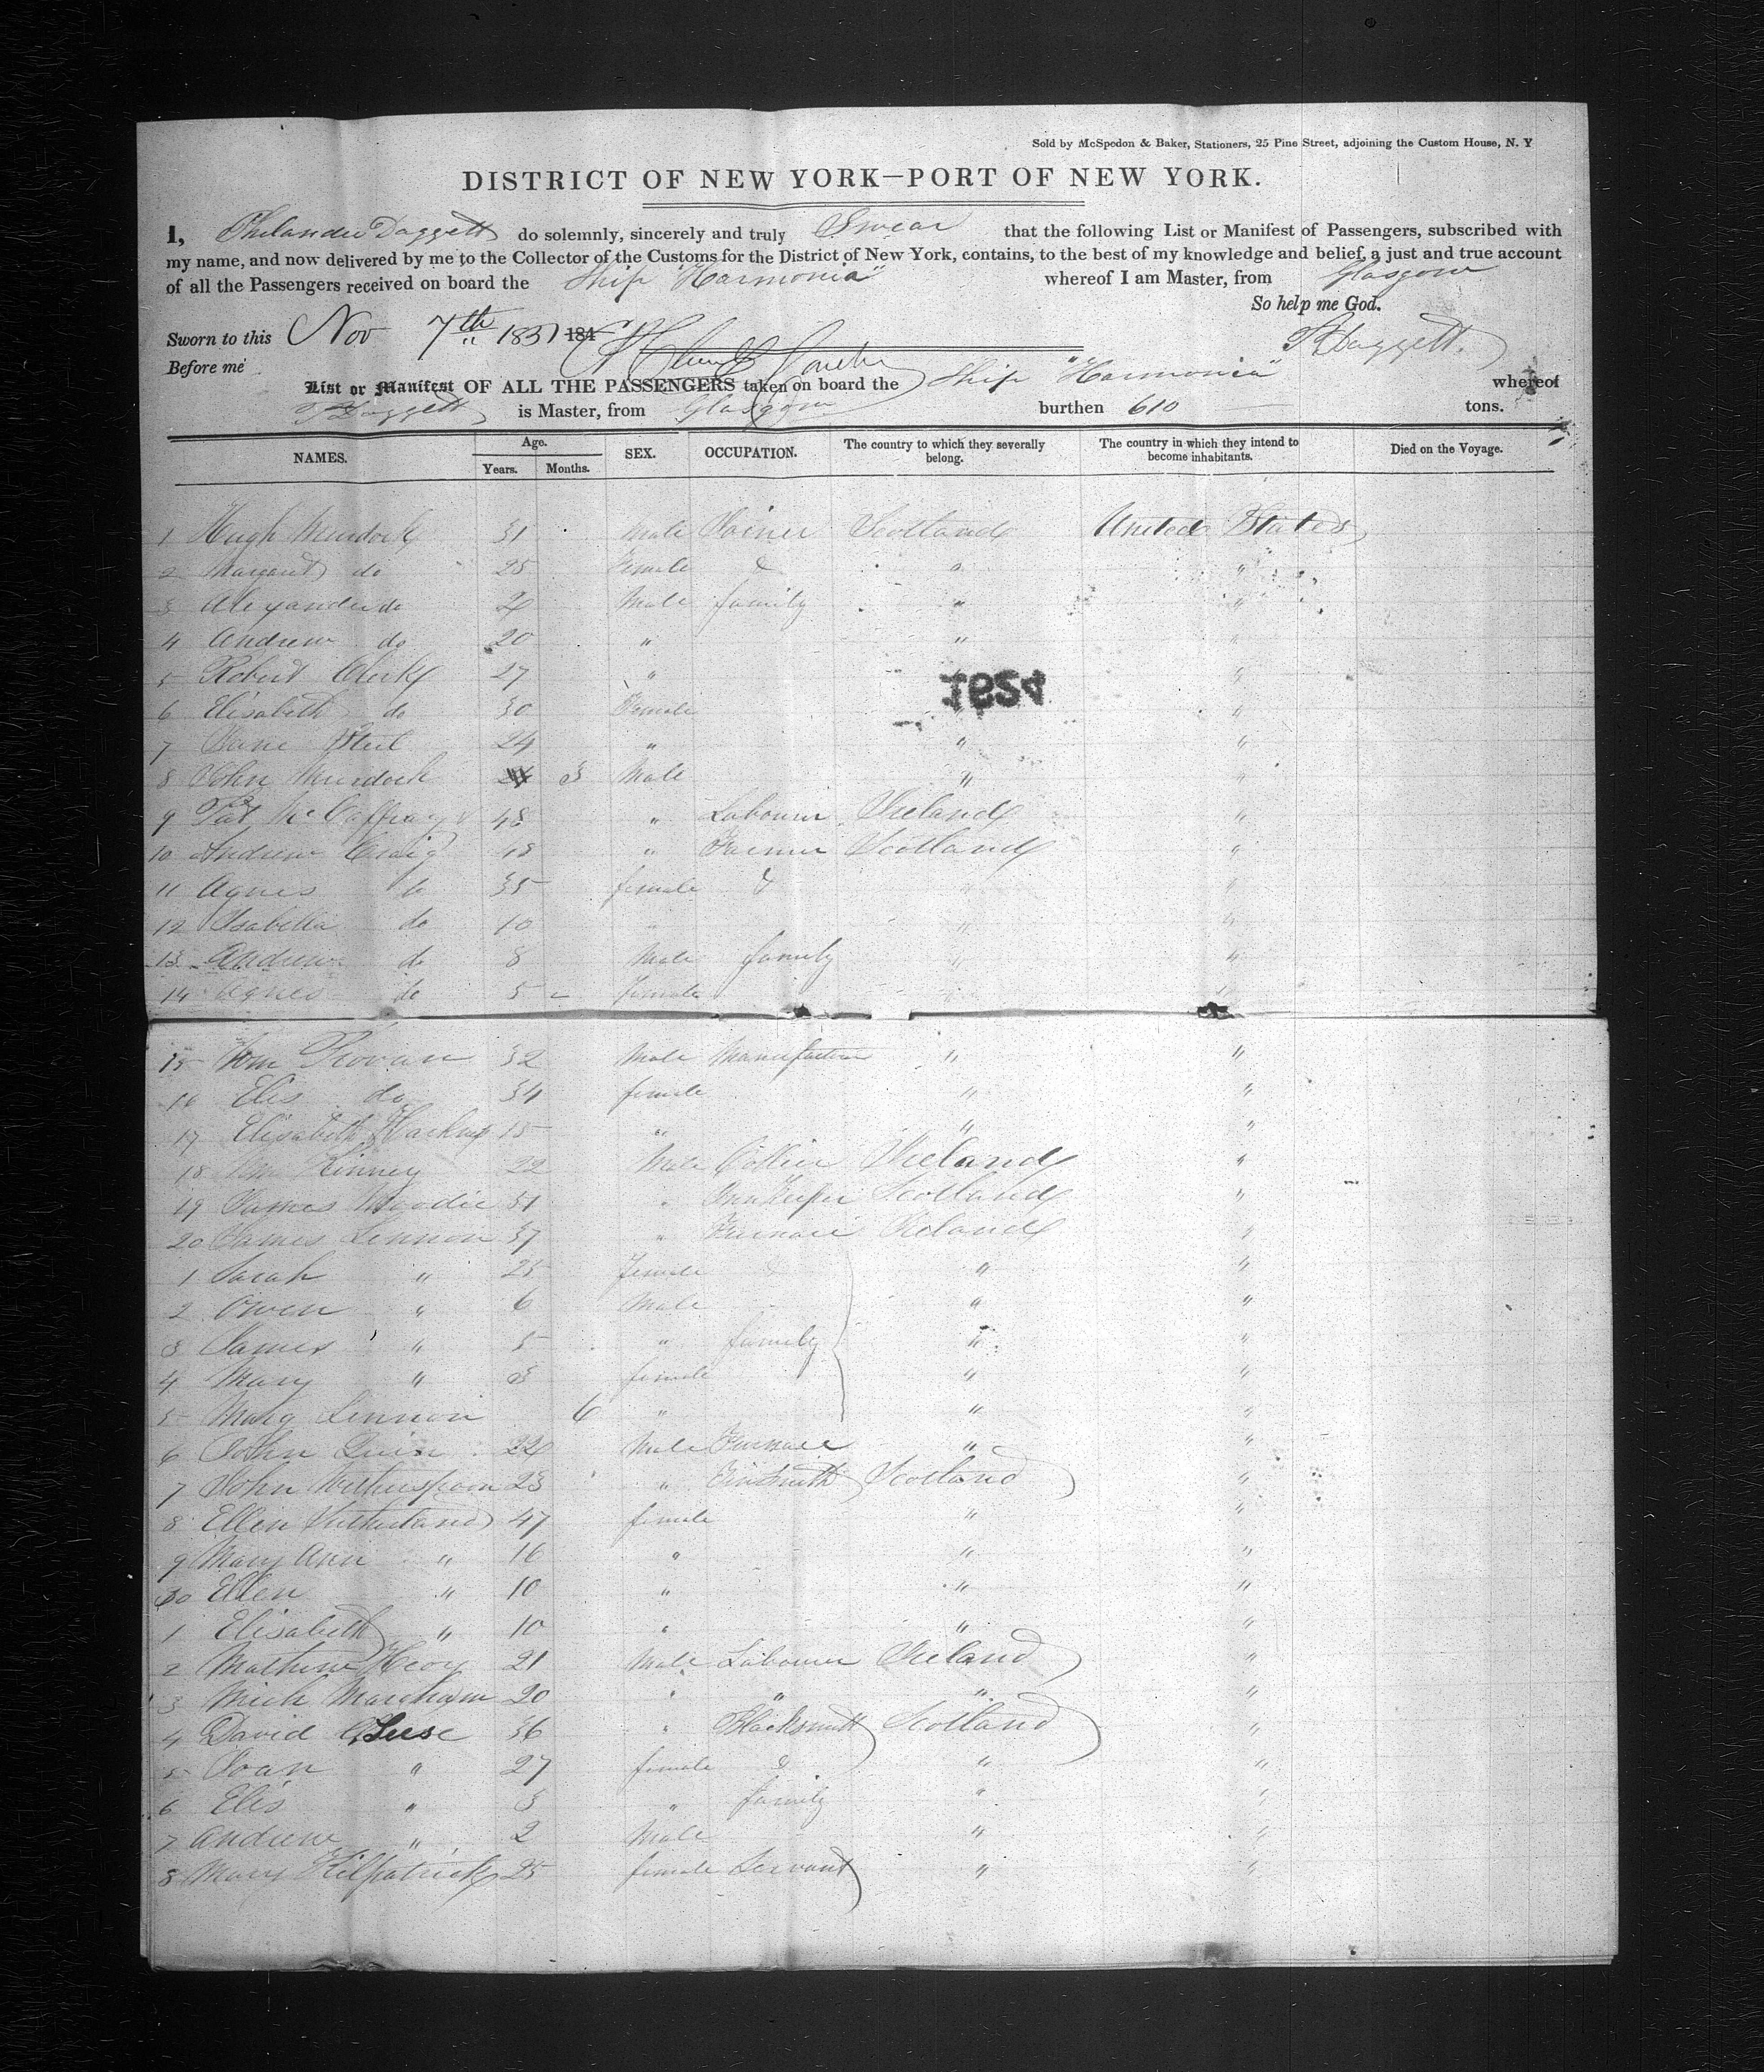 Sold by McSpedon & Baker, Stationers, 25 Pine Street, adjoining the Custom House, N. Y
DISTRICT OF NEW YORK—PORT OF NEW YORK.
I, Philander Daggett do solemnly, sincerely and truly Swear that the following List or Manifest of Passengers, subscribed with
my name, and now delivered by me to the Collector of the Customs for the District of New York, contains, to the best of my knowledge and belief, a just and true account
of all the Passengers received on board the Ship "Harmonia" whereof I am Master, from Glasgow
So help me God.
Sworn to this Nov 7th 1851 184 P Daggett.
Before me
List or Manifest OF ALL THE PASSENGERS taken on board the Ship "Harmonia" whereof
P Daggett is Master, from Glasgow burthen 610 tons.
NAMES. Age. Years. Months. SEX. OCCUPATION. The country to which they severally belong. The country in which they intend to become inhabitants. Died on the Voyage.
1 Hugh Murdock 31 Male Joiner Scotland United States
2 Margaret do 25 Female & " "
3 Alexander do Male family " "
4 Andrew do 20 " " "
5 Robert Clerk 27 " "
1524
6 Elisabeth do 30 Female " "
7 Jane Steel 24 " " "
8 John Murdock 3 Male " "
9 Pat McCaffray 48 " Labourer Ireland "
10 Andrew Craig 48 " Farmer Scotland "
11 Agnes do 35 female & " "
12 Isabella do 10 " " "
13 Andrew do 8 Male family " "
14 Agnes do 5 female "
15 Wm Provan 32 Male Manufacturer " "
16 Elis do 34 female " "
17 Elisabeth 15 " " "
18 Wm Kinney 22 Male Collier Ireland "
19 James Moodie 51 " Innkeeper Scotland "
20 James Lennon 37 " Furnace Ireland "
1 Sarah " 25 female & " "
2 Owen " 6 Male " "
3 James " 5 " family " "
4 Mary " 3 female " "
5 Marg Lennon 6 " " "
6 John Quin 22 Male Furnace " "
7 John Witherspoon 23 " Tinsmith Scotland "
8 Ellen Sutherland 47 female " "
9 Mary Ann " 16 " " "
30 Ellen " 10 " " "
1 Elisabeth " 10 " " "
2 Mathew 21 Male Labourer Ireland "
3 Mich 20 " " " "
4 David 36 " Blacksmith Scotland "
5 Joan " 27 female & " "
6 Elis " 3 " family " "
7 Andrew " 2 Male " "
8 Mary Kilpatrick 25 female Servant " "